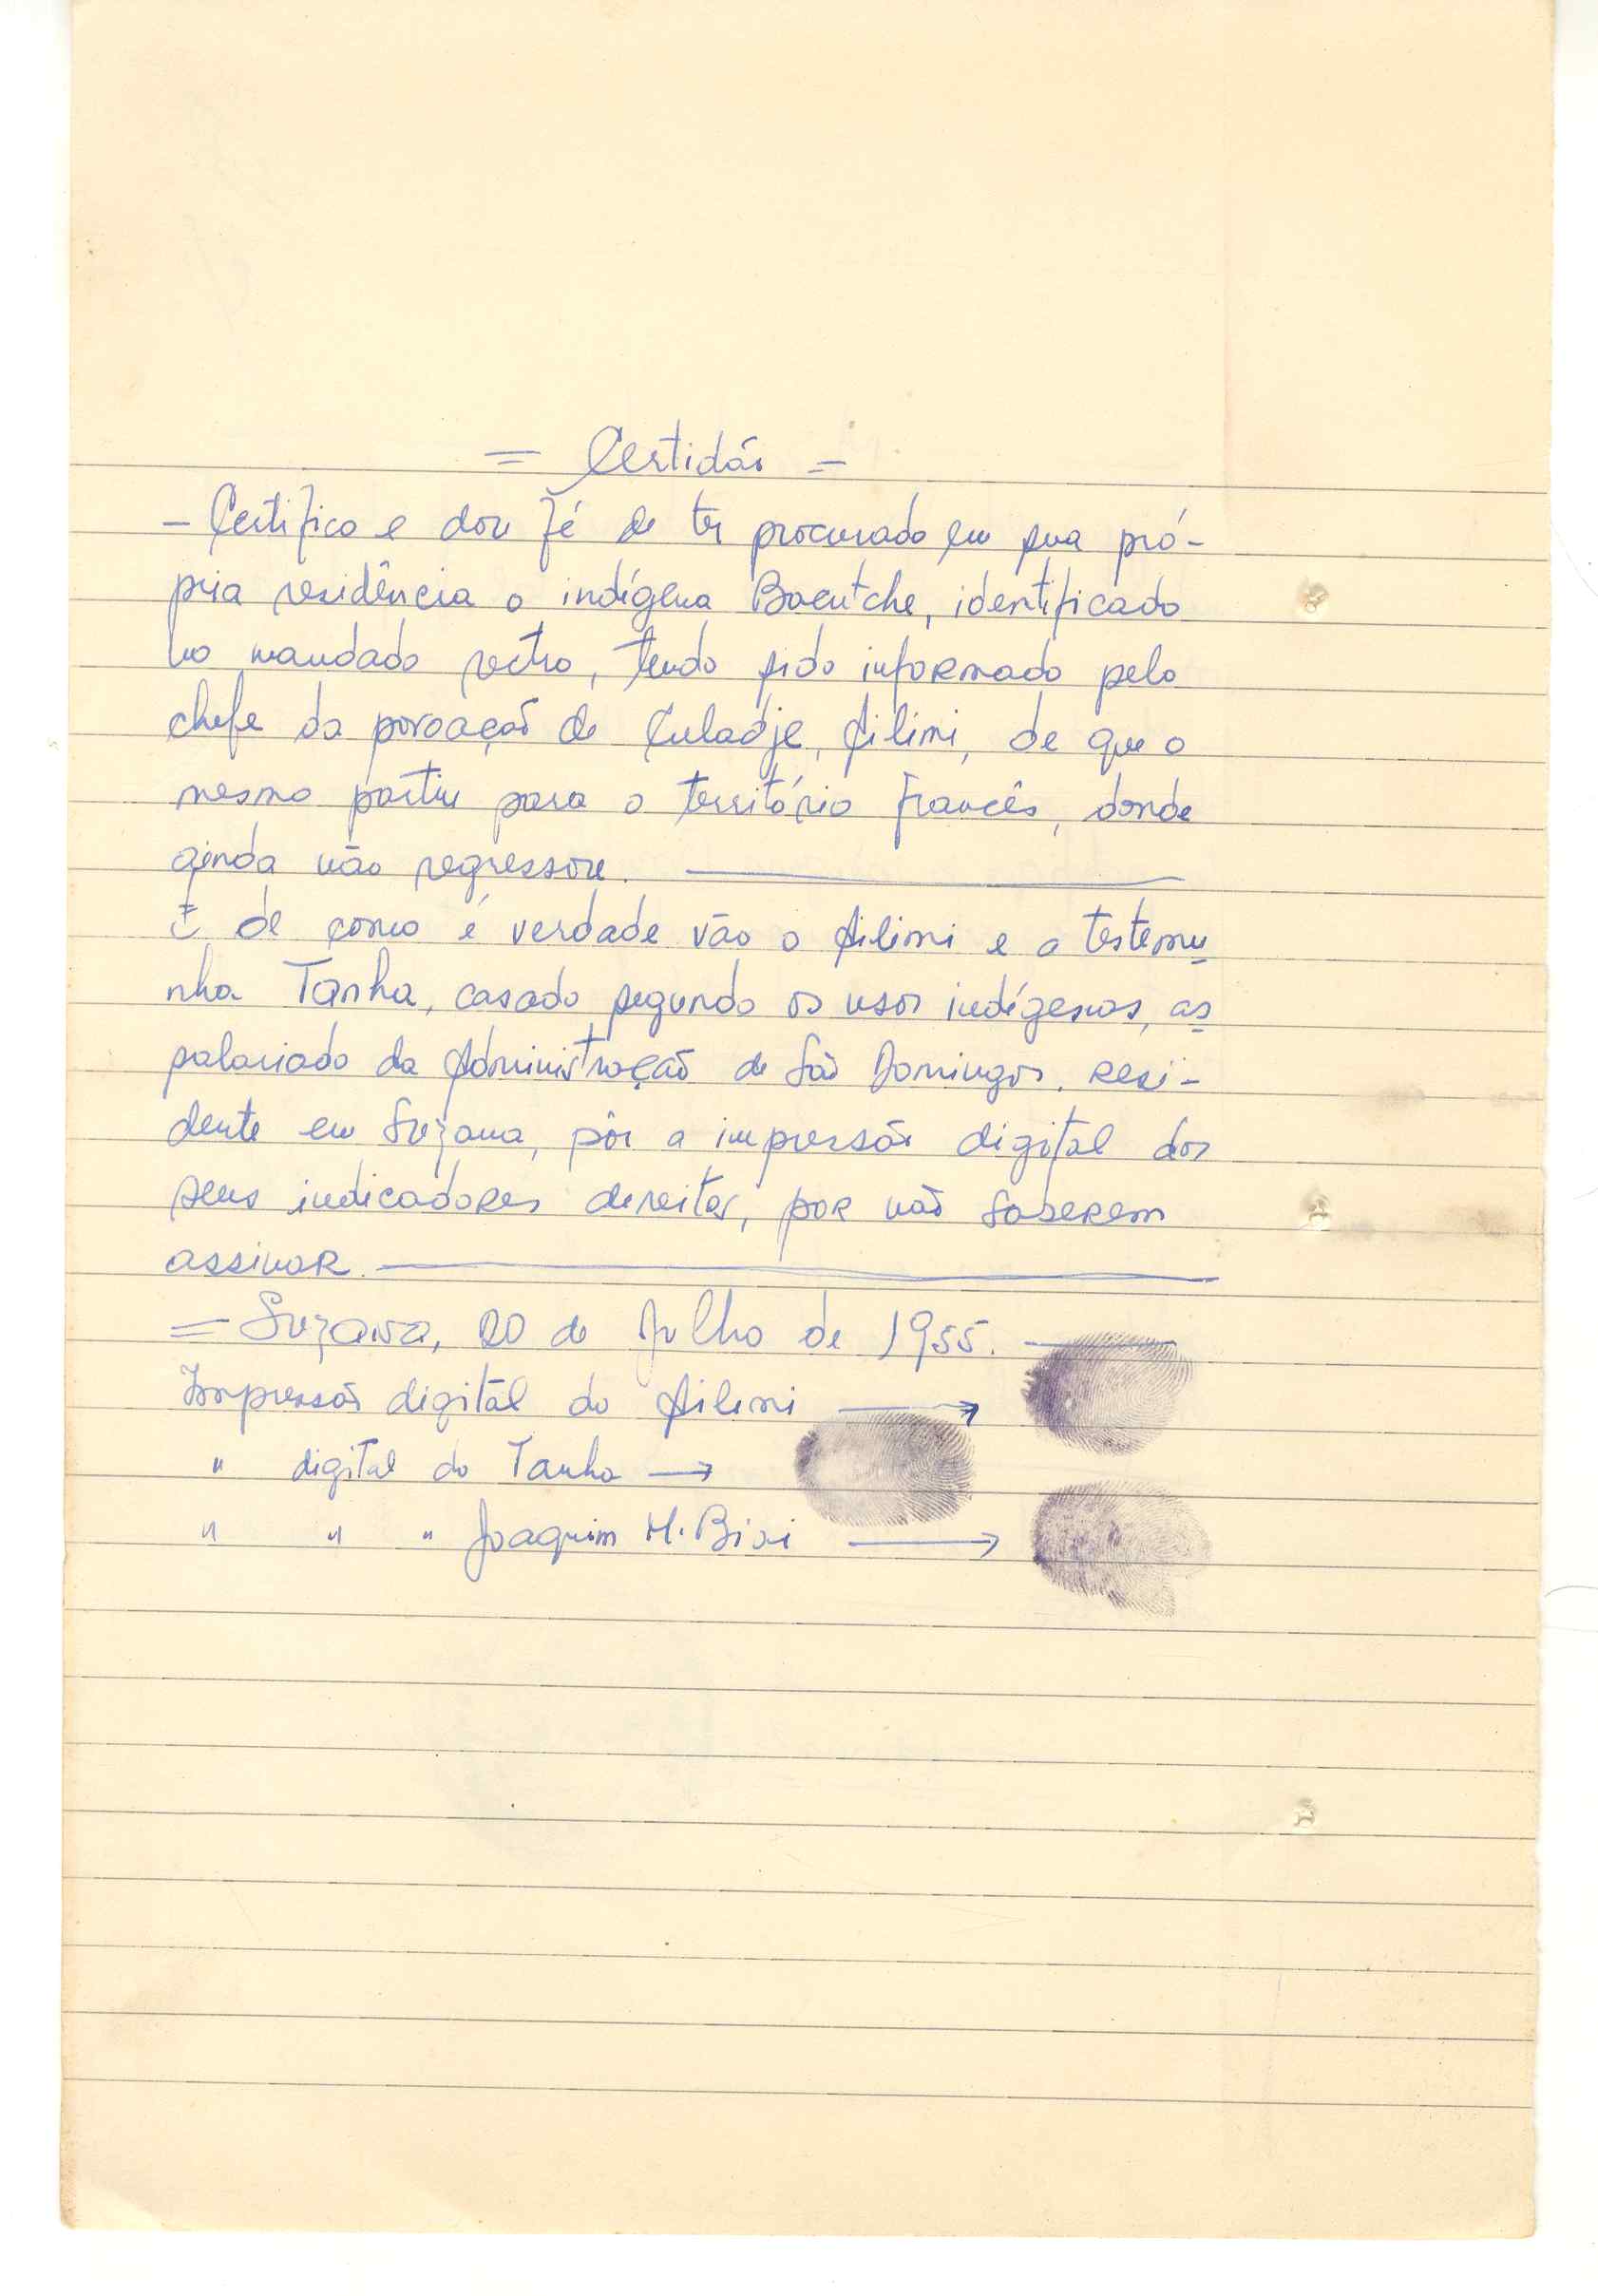 = Certidão =
- Certifico e dou fé de ter procurado em sua pró-
pria residência o indígena Baeutche, identificado
no mandado retro, tendo sido informado pelo
chefe da povoação de Culadje, Ailimi, de que o
mesmo partiu para o território francês, donde
ainda não regressou.
E de como é verdade vão o Ailimi e a testemu
nha Tanha, casado segundo os usos indígenas, as
salariado da Administração de São Domingos, resi-
dente em Suzana, pôr a impressão digital dos
seus indicadores direitos, por não saberem
assinar.
= Suzana, 20 de Julho de 1955.
Impressão digital do Ailimi →
" digital do Tanha →
" " " Joaquim M. Bixi →